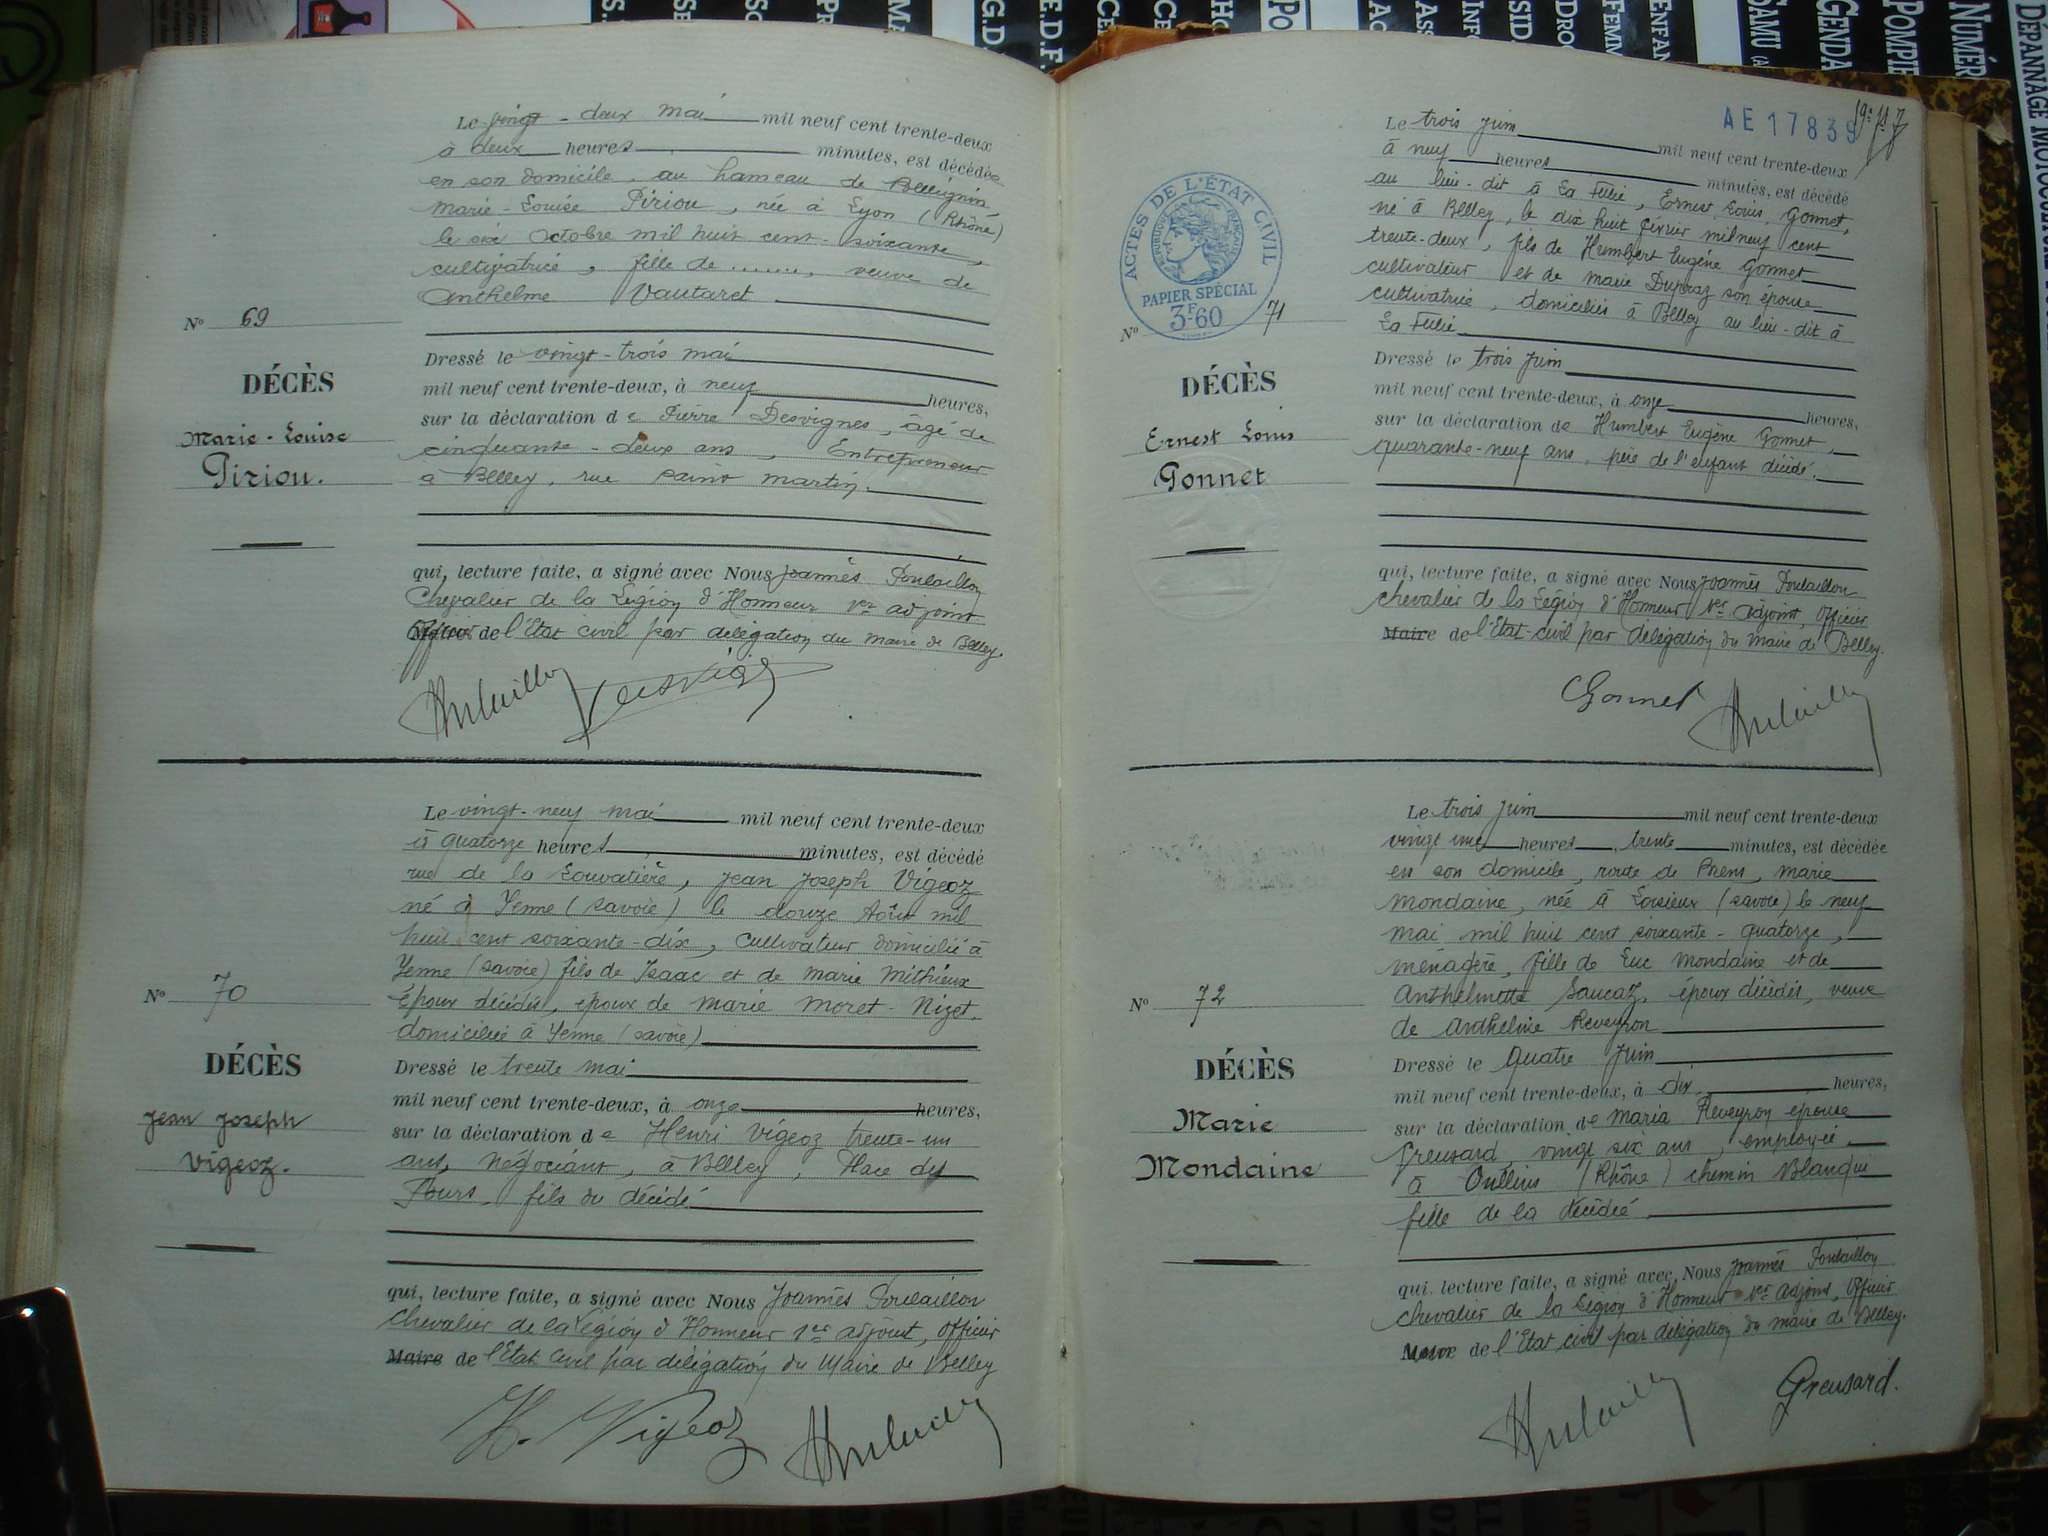 Le vingt-deux mai mil neuf cent trente-deux
à deux heures minutes, est décédée
en son domicile au hameau de
Marie-Louise Piriou, née à Lyon (Rhône)
le six Octobre mil huit cent-soixante,
cultivatrice, fille de ......., veuve de
Anthelme Vautaret
Nº 69
DÉCÈS
Marie-Louise
Piriou.
Dressé le vingt-trois mai
mil neuf cent trente-deux, à neuf heures,
sur la déclaration de Pierre Desvignes, âgé de
cinquante-deux ans, Entrepreneur
à Belley, rue saint martin.
qui, lecture faite, a signé avec Nous Joannès Poulaillon
Chevalier de la Légion d'Honneur 1er adjoint
de l'Etat civil par délégation du maire de Belley.
Le vingt-neuf mai mil neuf cent trente-deux
à quatorze heures minutes, est décédé
rue de la Louvatière, Jean Joseph Vigeoz
né à Yenne (Savoie) le douze Août mil
huit cent soixante-dix, cultivateur domicilié à
Yenne (Savoie) fils de Isaac et de Marie Mithieux
époux décédés, époux de Marie Moret-Nizet,
domiciliée à Yenne (Savoie)
Nº 70
DÉCÈS
Jean Joseph
Vigeoz.
Dressé le trente mai
mil neuf cent trente-deux, à onze heures,
sur la déclaration de Henri Vigeoz trente-un
ans, négociant, à Belley, Place des
Fours, fils du décédé
qui, lecture faite, a signé avec Nous Joannès Poulaillon
Chevalier de la Légion d'Honneur 1er adjoint, officier
Maire de l'Etat Civil par délégation du Maire de Belley
H. Vigeoz
AE 17839
ACTES DE L'ÉTAT CIVIL
RÉPUBLIQUE FRANÇAISE
PAPIER SPÉCIAL
3F60
Le trois juin mil neuf cent trente-deux
à neuf heures minutes, est décédé
au lieu-dit à La Fulie, Ernest Louis Gonnet,
né à Belley, le dix huit février mil neuf cent
trente-deux, fils de Humbert Eugène Gonnet
cultivateur et de marie Dupraz son épouse
cultivatrice, domiciliés à Belley au lieu-dit à
La Fulie
Nº 71
DÉCÈS
Ernest Louis
Gonnet
Dressé le trois juin
mil neuf cent trente-deux, à onze heures,
sur la déclaration de Humbert Eugène Gonnet,
quarante-neuf ans, père de l'enfant décédé.
qui, lecture faite, a signé avec Nous Joannès Poulaillon
chevalier de la Légion d'Honneur 1er adjoint, Officier
Maire de l'Etat-civil par délégation du maire de Belley.
Gonnet
Le trois juin mil neuf cent trente-deux
vingt une heures, trente minutes, est décédée
en son domicile, route de Phens, Marie
Mondaine, née à Loisieux (Savoie) le neuf
mai mil huit cent soixante-quatorze,
ménagère, fille de Luc Mondaine et de
Anthelmette Saucaz, époux décédés, veuve
de Anthelme Reveyron
Nº 72
DÉCÈS
Marie
Mondaine
Dressé le quatre juin
mil neuf cent trente-deux, à dix heures,
sur la déclaration de Maria Reveyron épouse
Greusard, vingt six ans, employée
à Oullins (Rhône) chemin Blanqui
fille de la décédée
qui, lecture faite, a signé avec Nous Joannès Poulaillon
chevalier de la Légion d'Honneur 1er adjoint, Officier
Maire de l'Etat civil par délégation du maire de Belley.
Greusard.
E.D.F.
SAMU
GENDA
POMPIE
NUMÉR
DÉPANNAGE